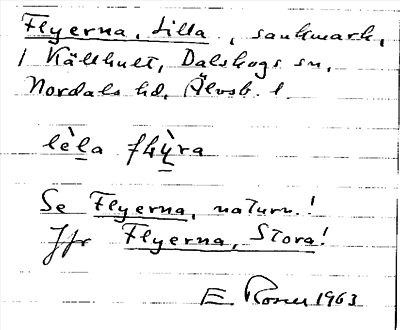 Flyerna, Lilla, sankmark,
i Källhult, Dalskogs sn,
Nordals hd, Älvsb. l.
lèla flỳra
Se Flyerna, naturn.!
Jfr Flyerna, Stora!
E. 1963